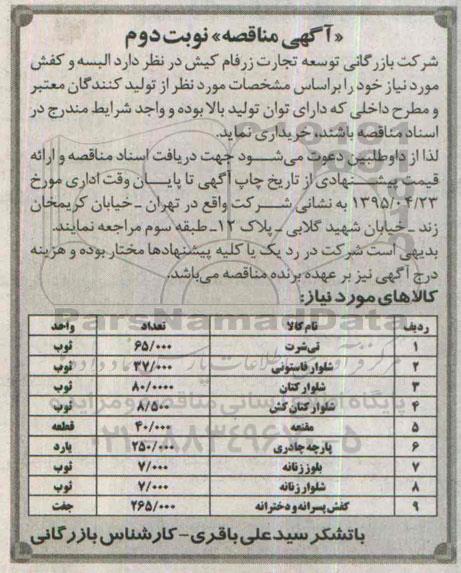 «آگهی مناقصه» نوبت دوم
شرکت بازرگانی توسعه تجارت زرفام کیش در نظر دارد البسه و کفش
مورد نیاز خود را براساس مشخصات مورد نظر از تولید کنندگان معتبر
و مطرح داخلی که دارای توان تولید بالا بوده و واجد شرایط مندرج در
اسناد مناقصه باشند، خریداری نماید.
لذا از داوطلبین دعوت می‌شود جهت دریافت اسناد مناقصه و ارائه
قیمت پیشنهادی از تاریخ چاپ آگهی تا پایان وقت اداری مورخ
۱۳۹۵/۰۴/۲۳ به نشانی شرکت واقع در تهران ـ خیابان کریمخان
زند ـ خیابان شهید گلابی ـ پلاک ۱۲ـ طبقه سوم مراجعه نمایند.
بدیهی است شرکت در رد یک یا کلیه پیشنهادها مختار بوده و هزینه
درج آگهی نیز بر عهده برنده مناقصه می‌باشد.
کالاهای مورد نیاز:
ردیف نام کالا تعداد واحد
۱ تی‌شرت ۶۵/۰۰۰ ثوب
۲ شلوار فاستونی ۳۷/۰۰۰ ثوب
۳ شلوار کتان ۸۰/۰۰۰۰ ثوب
۴ شلوار کتان کش ۸/۵۰۰ ثوب
۵ مقنعه ۴۰/۰۰۰ قطعه
۶ پارچه چادری ۲۵۰/۰۰۰ یارد
۷ بلوز زنانه ۷/۰۰۰ ثوب
۸ شلوار زنانه ۷/۰۰۰ ثوب
۹ کفش پسرانه و دخترانه ۲۶۵/۰۰۰ جفت
باتشکر سید علی باقری - کارشناس بازرگانی
ParsNamadData